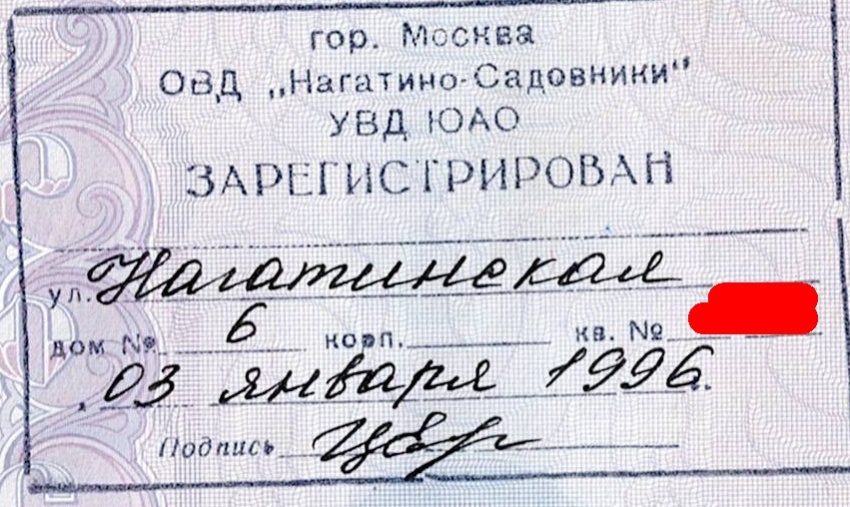 гор. Москва
ОВД „Нагатино-Садовники“
УВД ЮАО
ЗАРЕГИСТРИРОВАН
ул. Нагатинская
дом № 6 корп. кв. №
03 января 1996.
Подпись